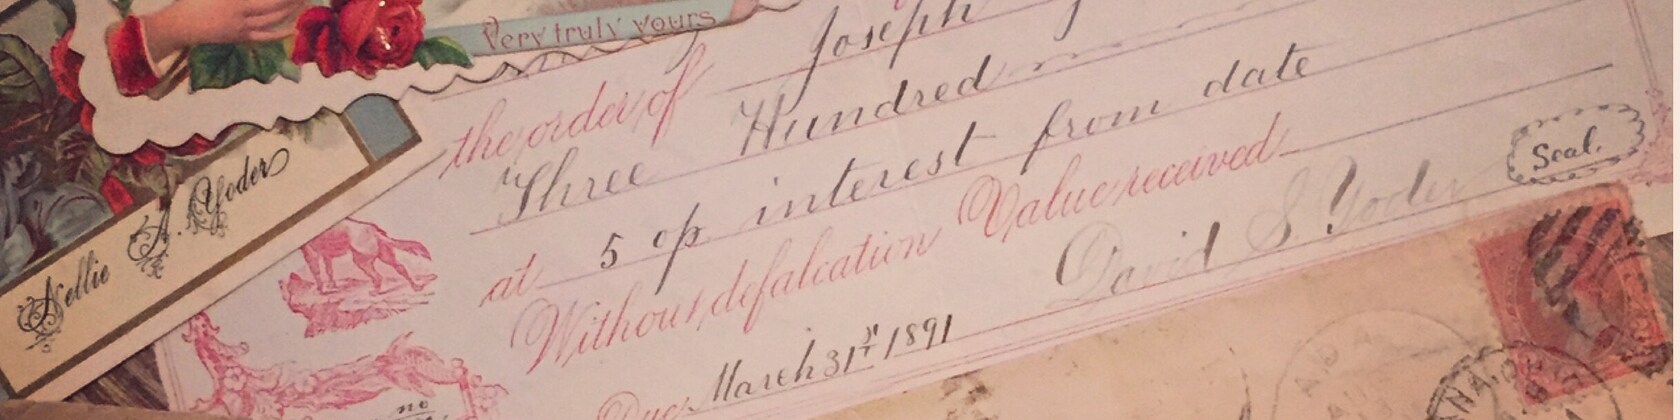 Very truly yours
Nellie A. Yoder
the order of Joseph
Three Hundred
at 5 op interest from date
Without defalcation Value received
David S. Yoder Seal.
Due March 31st 1891
no